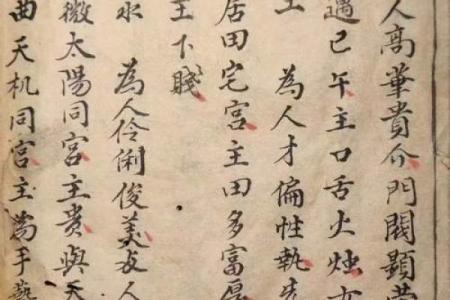 人高華貴介門閥顯
遇已午主口舌火燭
主 為人才偏性執
居田宅宮主田多富厚
主下賤
水 為人伶俐俊美人
微太陽同宮主貴與天
曲天机同宮主為手藝